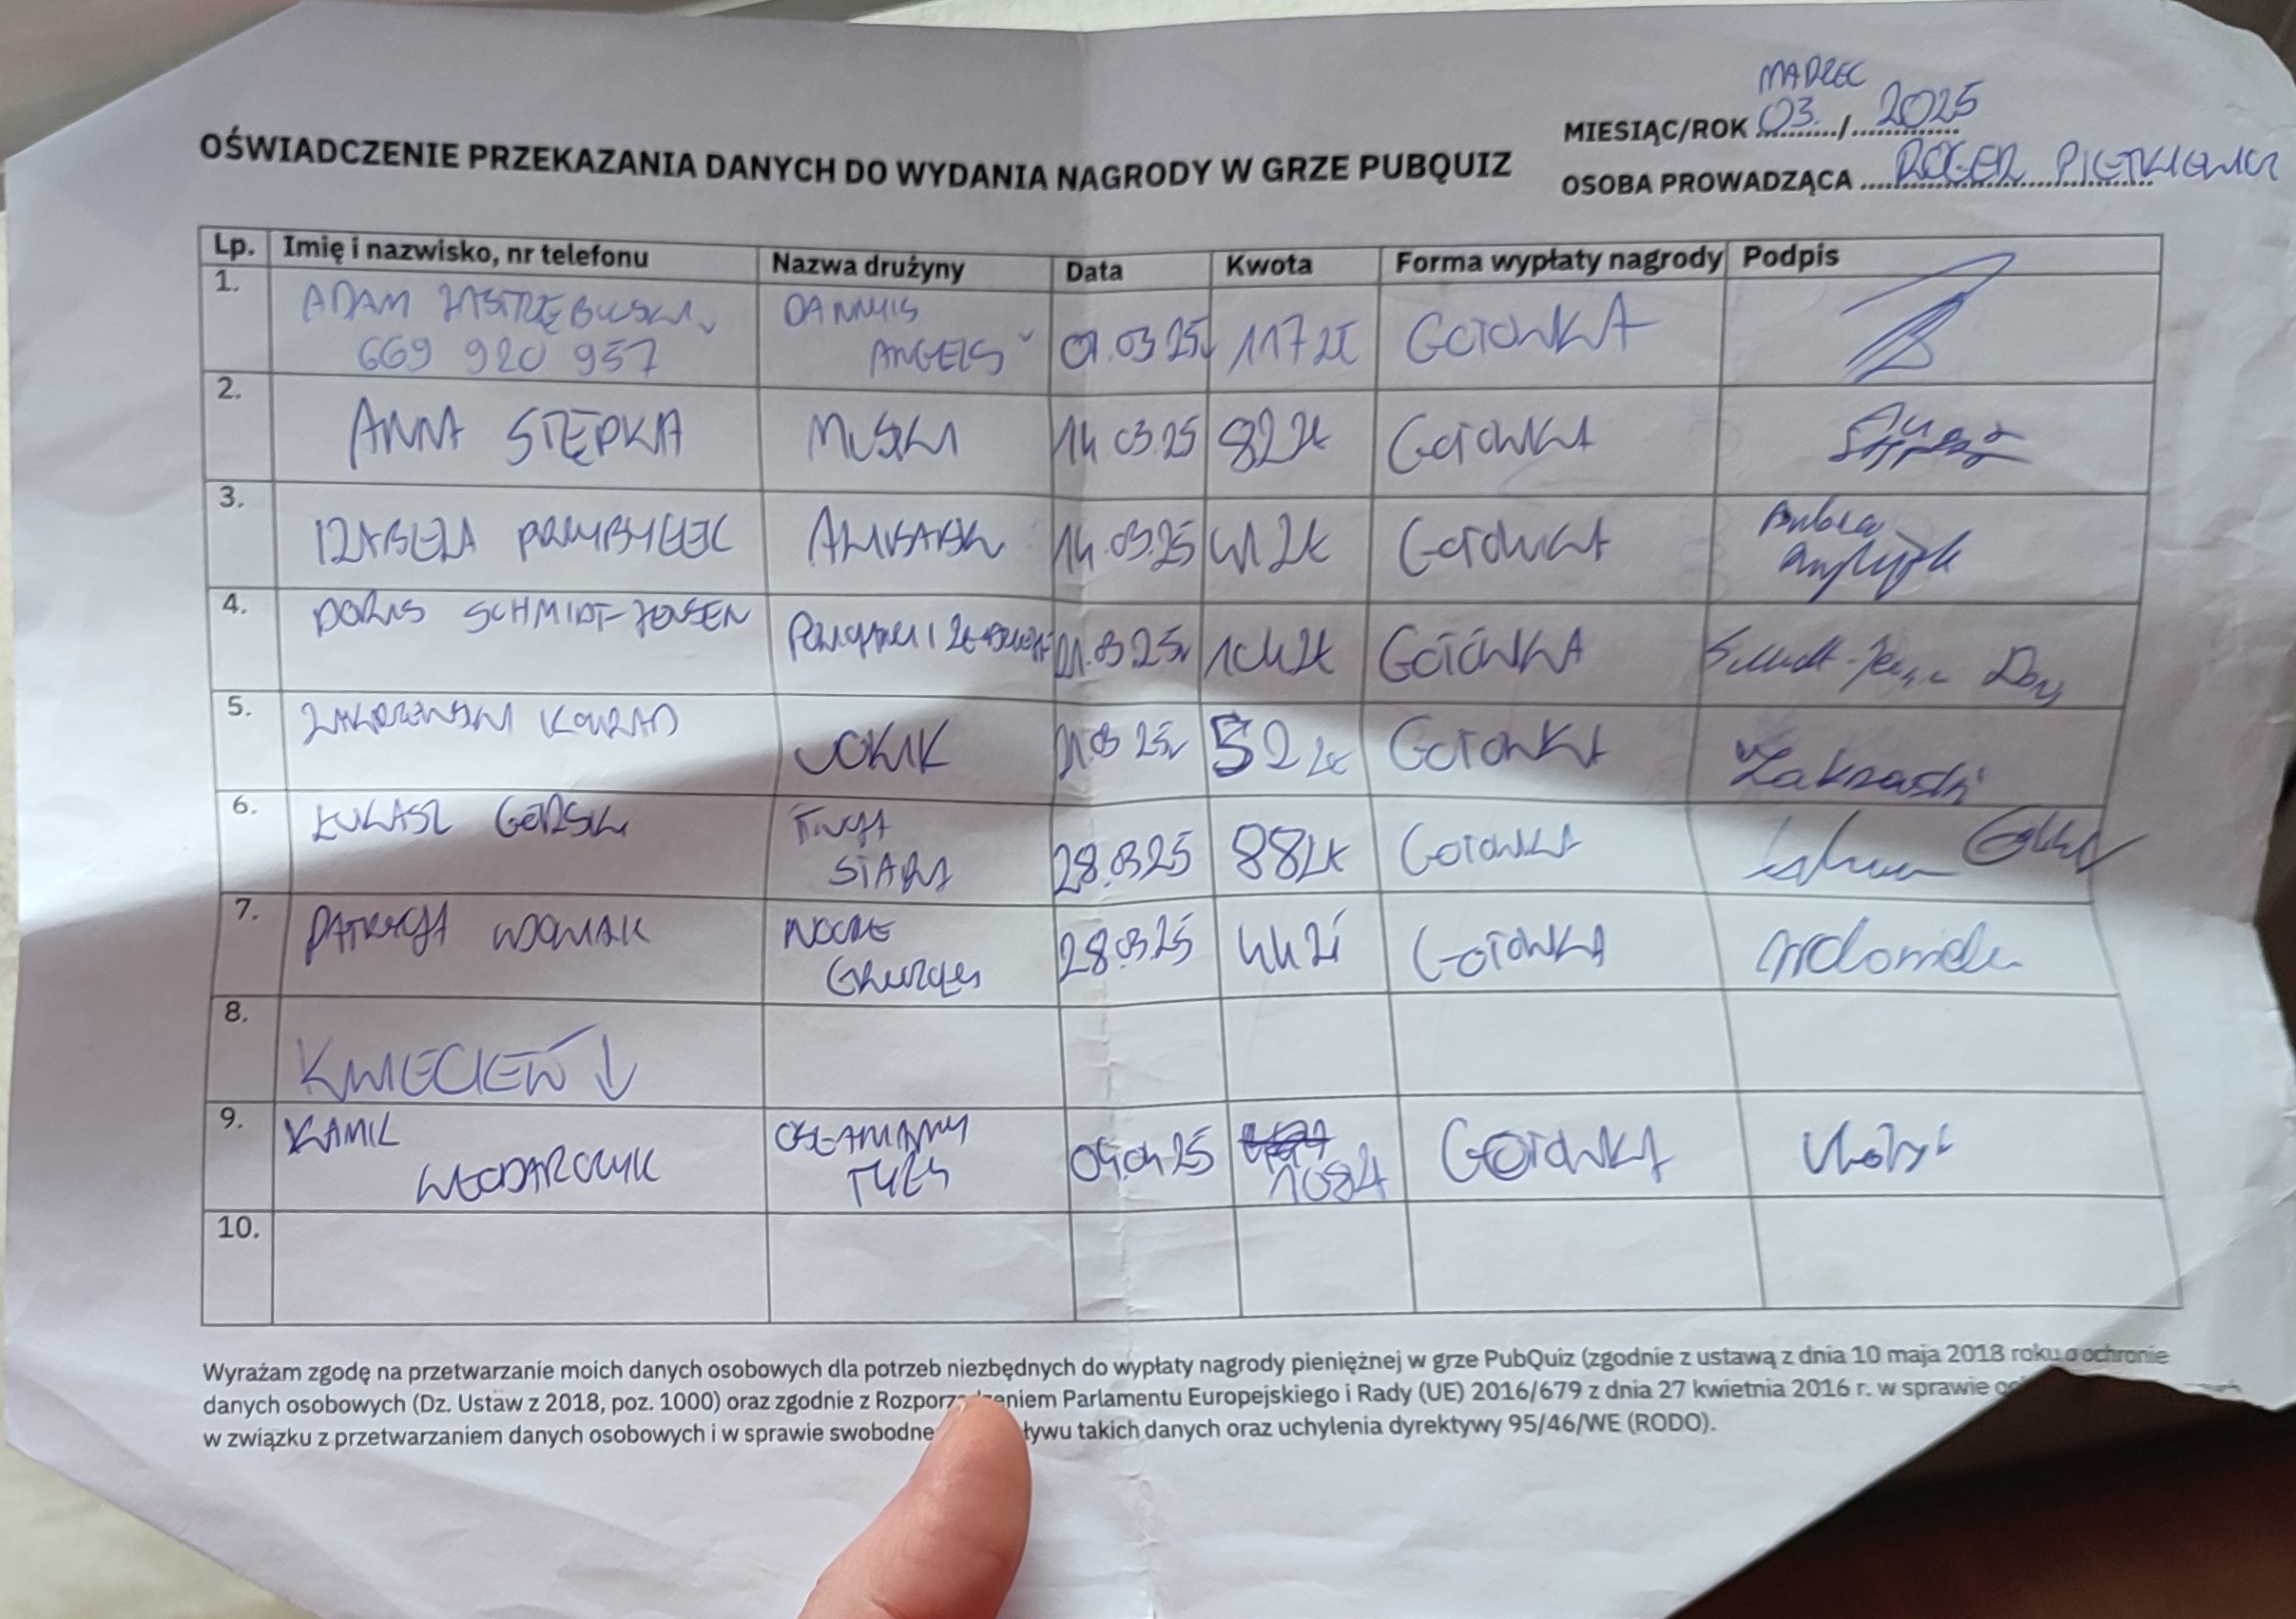 MARZEC
MIESIĄC/ROK 03. / 2025
OŚWIADCZENIE PRZEKAZANIA DANYCH DO WYDANIA NAGRODY W GRZE PUBQUIZ
OSOBA PROWADZĄCA ROGER PIETKIEWICZ
Lp. Imię i nazwisko, nr telefonu Nazwa drużyny Data Kwota Forma wypłaty nagrody Podpis
1. ADAM JASTRZĘBOWSKI DANNYIS
669 920 957 ANGELS 07.03.25 117 ZŁ GOTÓWKA
2. ANNA STĘPKA MUSKI 14.03.25 82 ZŁ GOTÓWKA
3. IZABELA PRZYBYŁEK 14.03.25 41 ZŁ GOTÓWKA
4. DORIS SCHMIDT-JENSEN 21.03.25 104 ZŁ GOTÓWKA
5. ZAKRZEWSKI KONRAD 21.03.25 52 ZŁ GOTÓWKA Zakrzewski
6. ŁUKASZ GÓRSKI TWOJA
STARA 28.03.25 88 ZŁ GOTÓWKA
7. PATRYCJA WDOWIAK NOCNE
28.03.25 44 ZŁ GOTÓWKA
8. KWIECIEŃ ↓
9. KAMIL OKŁAMANY
WŁODARCZYK TYŁEŚ 04.04.25 108 ZŁ GOTÓWKA
10.
Wyrażam zgodę na przetwarzanie moich danych osobowych dla potrzeb niezbędnych do wypłaty nagrody pieniężnej w grze PubQuiz (zgodnie z ustawą z dnia 10 maja 2018 roku o ochronie
danych osobowych (Dz. Ustaw z 2018, poz. 1000) oraz zgodnie z Rozporządzeniem Parlamentu Europejskiego i Rady (UE) 2016/679 z dnia 27 kwietnia 2016 r. w sprawie
w związku z przetwarzaniem danych osobowych i w sprawie takich danych oraz uchylenia dyrektywy 95/46/WE (RODO).